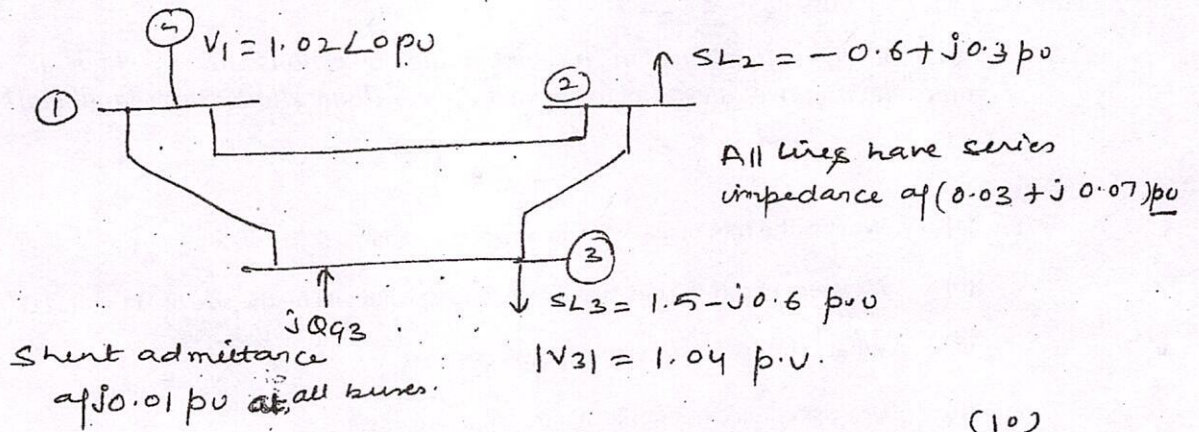 G
V1 = 1.02∠0 pu
SL2 = - 0.6 + j0.3 pu
1
2
All lines have series
impedance of (0.03 + j 0.07)pu
3
jQG3
SL3 = 1.5 - j0.6 p.u
Shunt admittance
of j0.01 pu at all buses.
|V3| = 1.04 p.u.
(10)